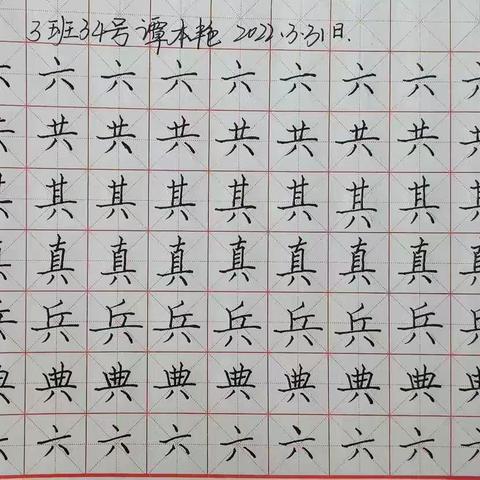 3班34号谭本艳 2022.3.31日.
六 六 六 六 六 六 六 六 六
共 共 共 共 共 共 共 共 共
其 其 其 其 其 其 其 其 其
真 真 真 真 真 真 真 真 真
兵 兵 兵 兵 兵 兵 兵 兵 兵
典 典 典 典 典 典 典 典 典
六 六 六 六 六 六 六 六 六